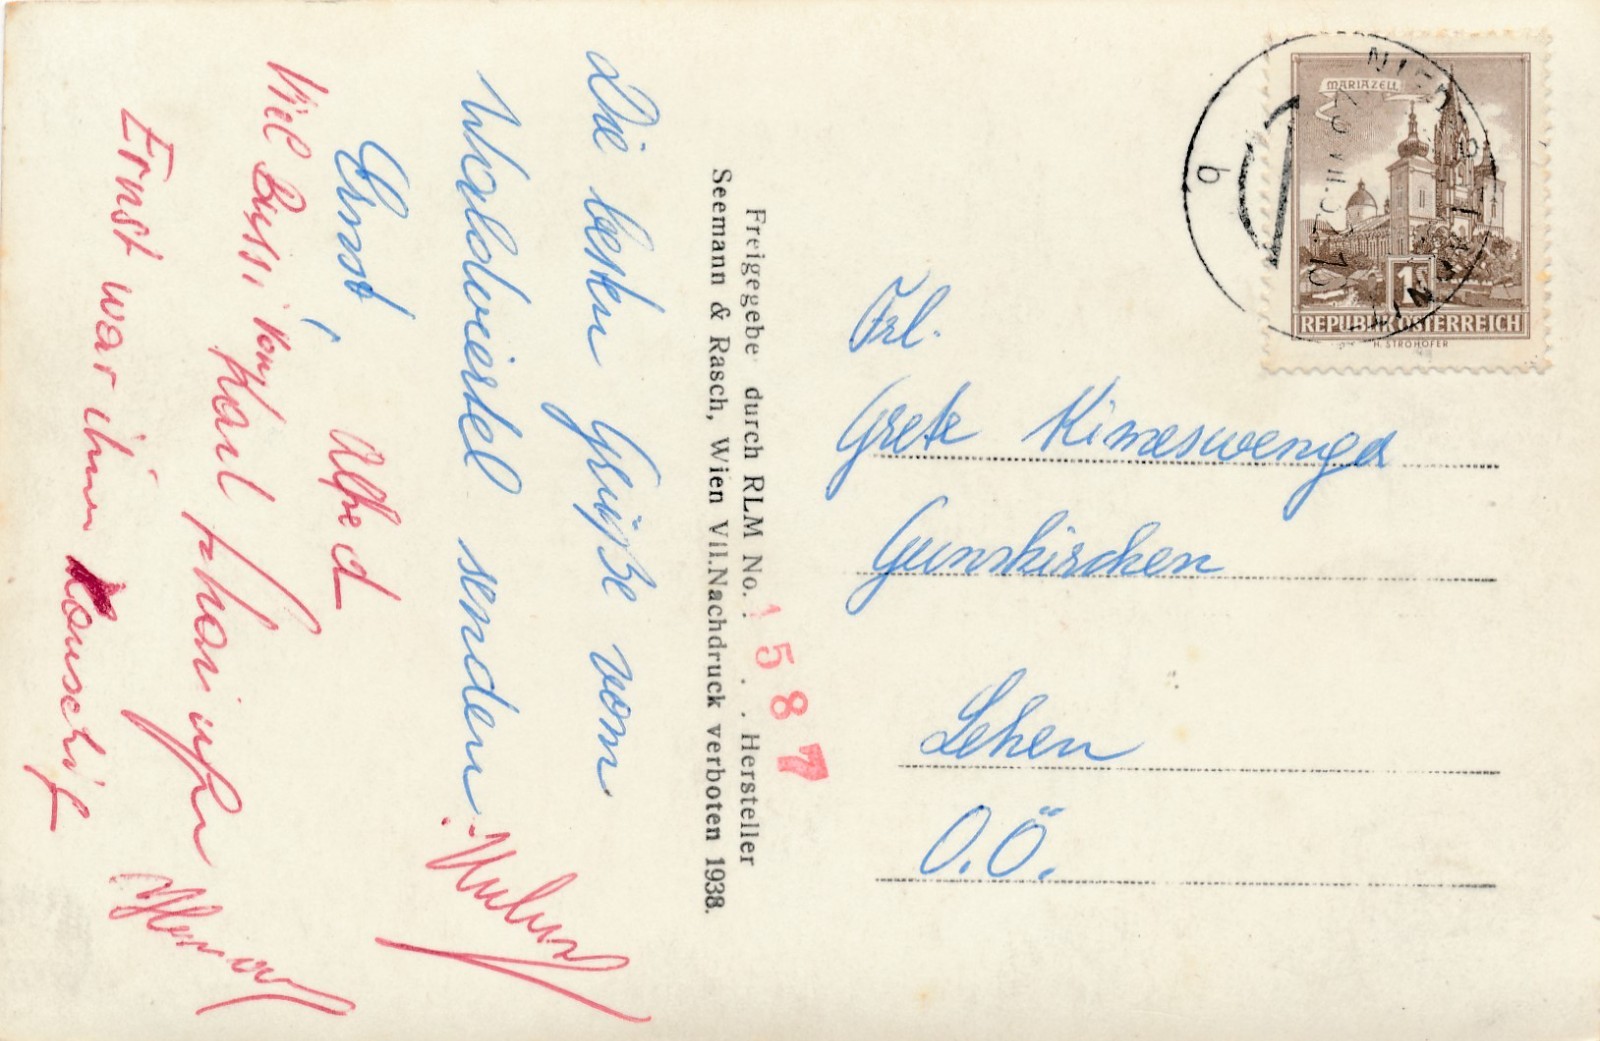 Die besten Grüße vom
Waldviertel senden
Ernst,
Alfred
Viel Bussi von
Karl
Ernst war ihm
Freigegebe durch RLM No. . . . Hersteller
1587
Seemann & Rasch, Wien VII. Nachdruck verboten 1938.
MARIAZELL
1S
REPUBLIK ÖSTERREICH
H. STROHOFER
b
Frl.
Grete Kimeswenger
Gunskirchen
Lehen
O.Ö.